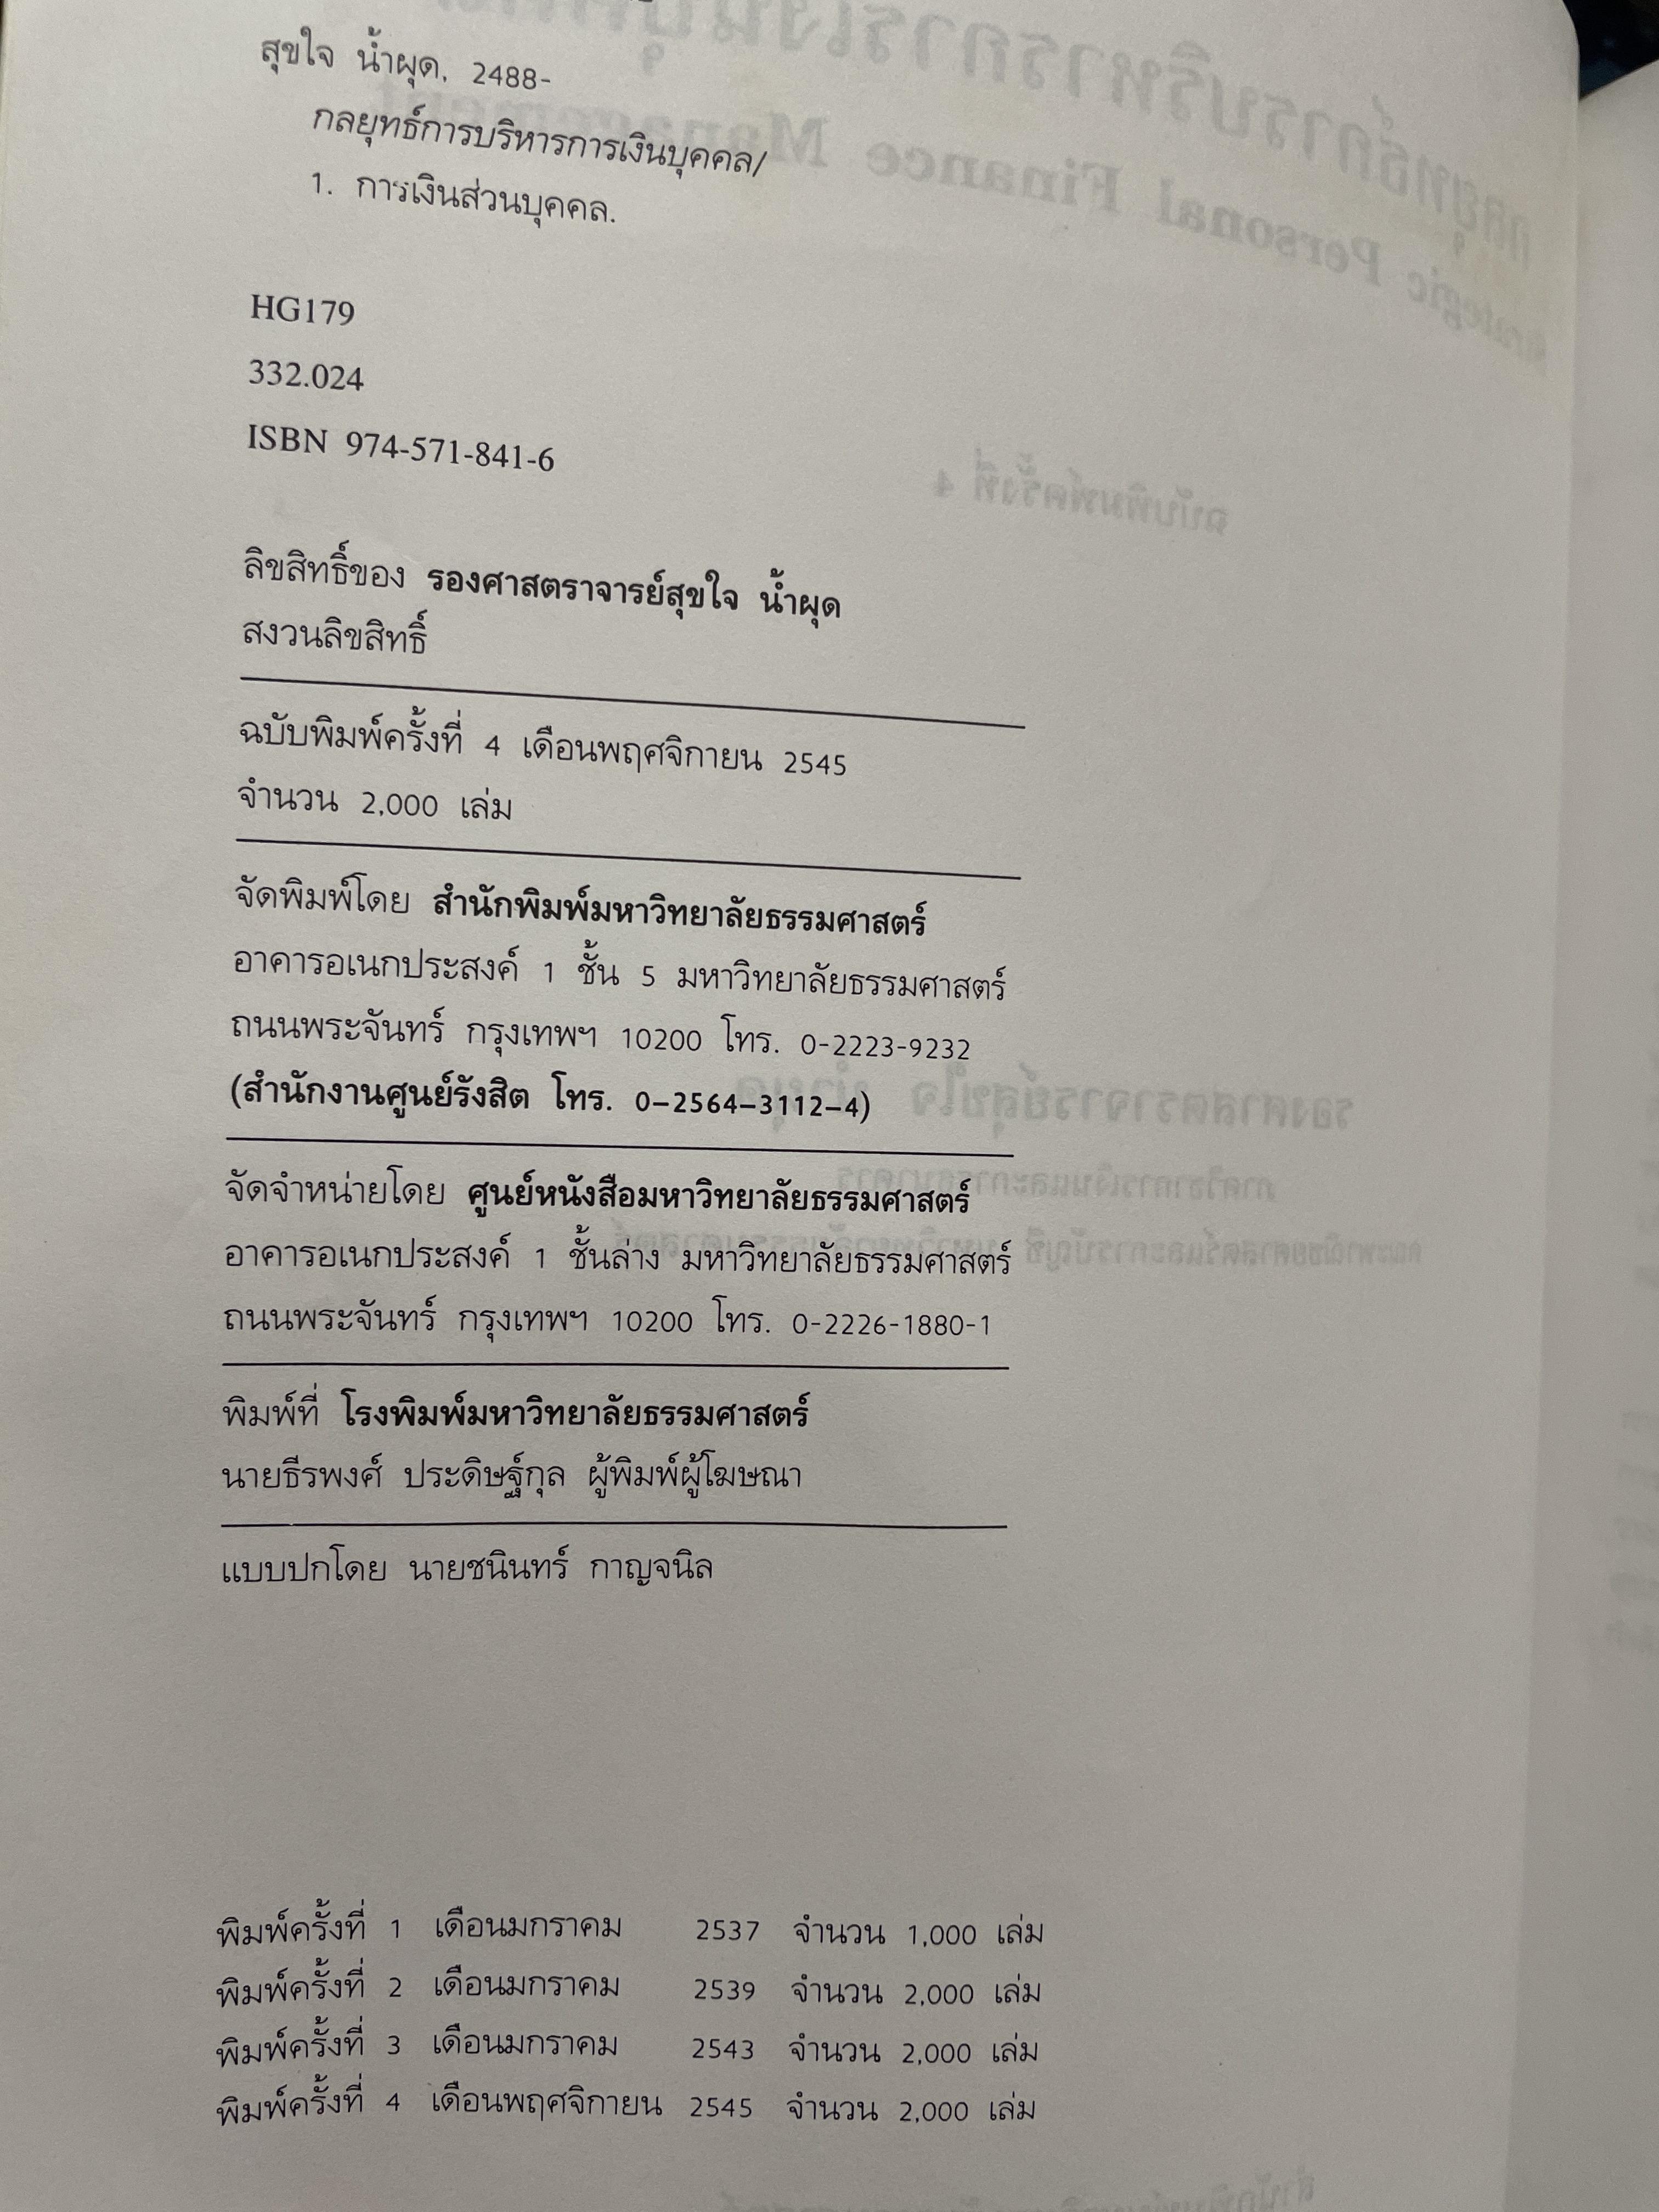 สุขใจ น้ำผุด, 2488-
กลยุทธ์การบริหารการเงินบุคคล/
1. การเงินส่วนบุคคล.
HG179
332.024
ISBN 974-571-841-6
ลิขสิทธิ์ของ รองศาสตราจารย์สุขใจ น้ำผุด
สงวนลิขสิทธิ์
ฉบับพิมพ์ครั้งที่ 4 เดือนพฤศจิกายน 2545
จำนวน 2,000 เล่ม
จัดพิมพ์โดย สำนักพิมพ์มหาวิทยาลัยธรรมศาสตร์
อาคารอเนกประสงค์ 1 ชั้น 5 มหาวิทยาลัยธรรมศาสตร์
ถนนพระจันทร์ กรุงเทพฯ 10200 โทร. 0-2223-9232
(สำนักงานศูนย์รังสิต โทร. 0-2564-3112-4)
จัดจำหน่ายโดย ศูนย์หนังสือมหาวิทยาลัยธรรมศาสตร์
อาคารอเนกประสงค์ 1 ชั้นล่าง มหาวิทยาลัยธรรมศาสตร์
ถนนพระจันทร์ กรุงเทพฯ 10200 โทร. 0-2226-1880-1
พิมพ์ที่ โรงพิมพ์มหาวิทยาลัยธรรมศาสตร์
นายธีรพงศ์ ประดิษฐ์กุล ผู้พิมพ์ผู้โฆษณา
แบบปกโดย นายชนินทร์ กาญจนิล
พิมพ์ครั้งที่ 1 เดือนมกราคม 2537 จำนวน 1,000 เล่ม
พิมพ์ครั้งที่ 2 เดือนมกราคม 2539 จำนวน 2,000 เล่ม
พิมพ์ครั้งที่ 3 เดือนมกราคม 2543 จำนวน 2,000 เล่ม
พิมพ์ครั้งที่ 4 เดือนพฤศจิกายน 2545 จำนวน 2,000 เล่ม